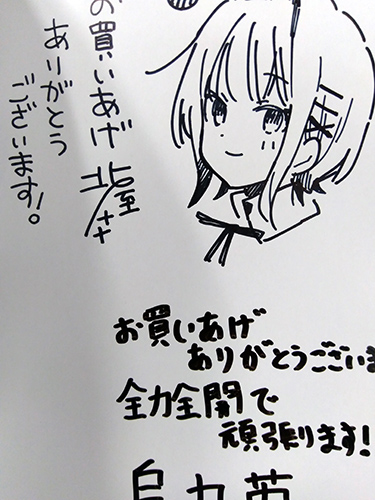 お買いあげ
ありがとう
ございます!
お買いあげ
ありがとうございま
全力全開で
頑張ります!